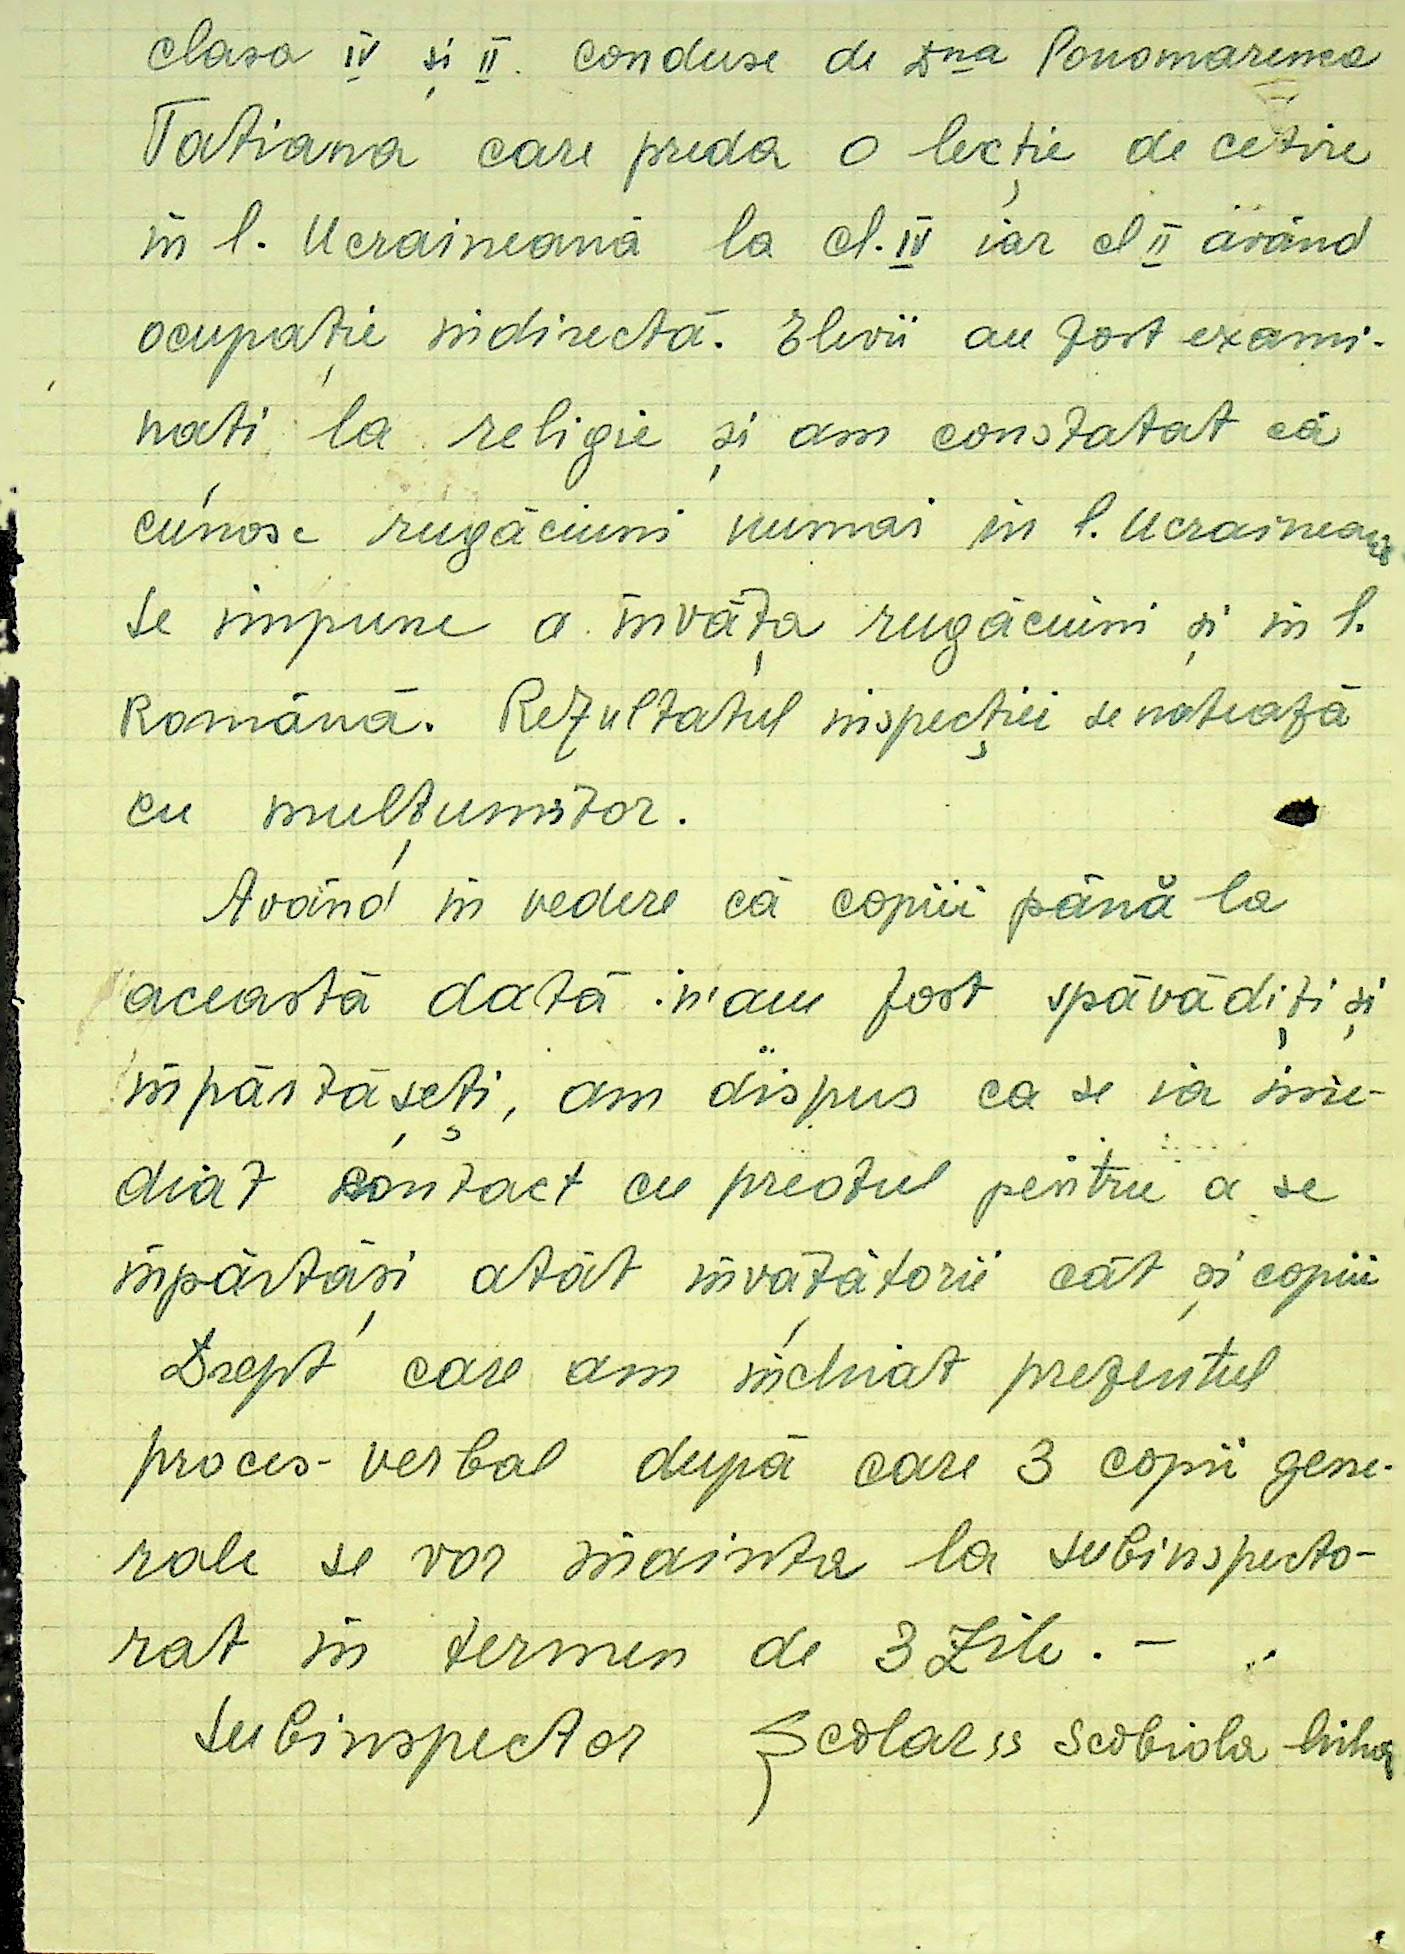 clasa IV și II. conduse de Dna Ponomarenco
Tatiana care preda o lecție de cetire
în l. Ucraineană la cl. IV iar cl II având
ocupație indirectă. Elevii au fost exami-
nați la religie și am constatat că
cunosc rugăciuni numai in l. Ucraineană
se impune a învăța rugăciuni și în l.
Română. Rezultatul inspecției se notează
cu mulțumitor.
Având în vedere că copiii până la
această dată n'au fost spăvădiți și
împărtășeți, am dispus ca se ia ime-
diat contact cu preotul pentru a se
împărtăși atât învățătorii cât și copiii
Drept care am închiat prezentul
proces-verbal după care 3 copii gene-
rale se vor înainta la subinspecto-
rat în termen de 3 Zile. -
Subinspector Școlar ss Scobiola